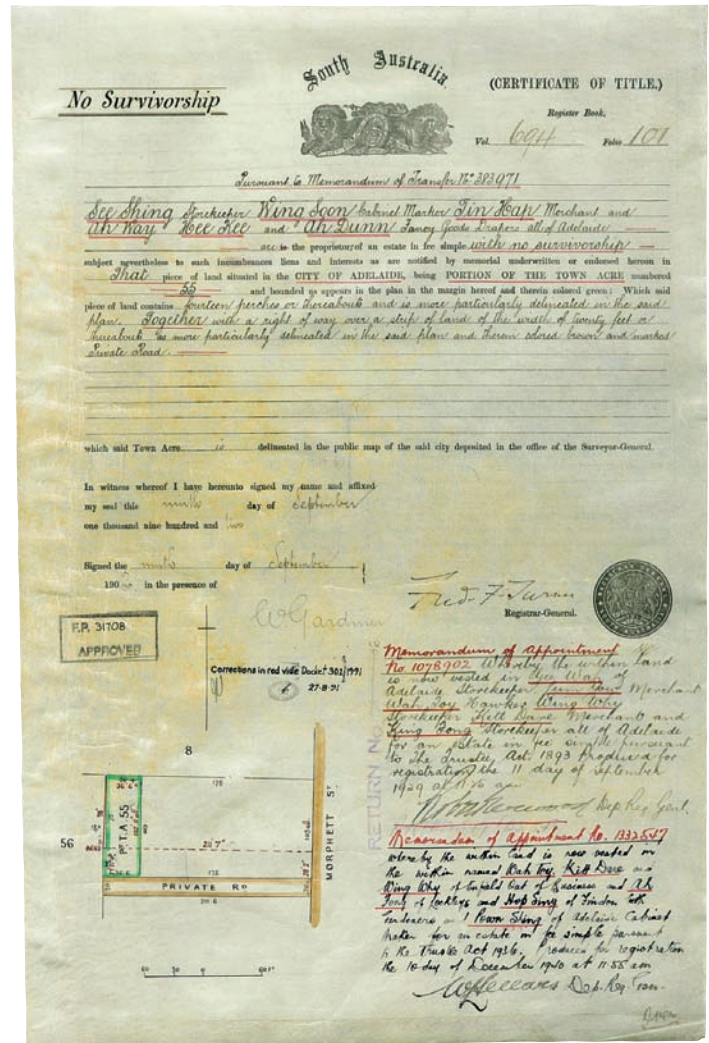 No Survivorship
South Australia.
(CERTIFICATE OF TITLE.)
Register Book,
Vol. 694 Folio 101
Pursuant to Memorandum of Transfer No 383971
See Shing Storekeeper Wing Soon Cabinet Marker Tin Hap Merchant and
Ah Way Hee Kee and Ah Dunn Fancy Goods Drapers all of Adelaide
are the proprietors of an estate in fee simple with no survivorship
subject nevertheless to such incumbrances liens and interests as are notified by memorial underwritten or endorsed hereon in
That piece of land situated in the CITY OF ADELAIDE, being PORTION OF THE TOWN ACRE numbered
55 and bounded as appears in the plan in the margin hereof and therein colored green: Which said
piece of land contains fourteen perches or thereabouts and is more particularly delineated in the said
plan. Together with a right of way over a strip of land of the width of twenty feet or
thereabouts as more particularly delineated in the said plan and therein colored brown and marked
Private Road.
which said Town Acre is delineated in the public map of the said city deposited in the office of the Surveyor-General.
In witness whereof I have hereunto signed my name and affixed
my seal this ninth day of September
one thousand nine hundred and two
Signed the ninth day of September
190 in the presence of
W Gardiner
Fred. F. Turner
Registrar-General.
F.P. 3170B
APPROVED
Corrections in red vide Docket 302/1991
27-8-91
RETURN No
Memorandum of Appointment
No 1078902 Whereby the within land
is now vested in Gee Way of
Adelaide Storekeeper Merchant
Wah Toy Hawker Wing Why
Storekeeper Kett Dave Merchant and
King Fong Storekeeper all of Adelaide
for an estate in fee simple pursuant
to The Trustee Act 1893 Produced for
registration the 11 day of September
1929 at am
Dep Reg Genl.
Memorandum of Appointment No. 1332547
whereby the within land is now vested in
the within named Wah Toy, Kett Dave and
Wing Why of Enfield Out of Business and Ah
Fong of Lockleys and Hop Sing of Findon both
Gardeners and Pown Shing of Adelaide Cabinet
maker for an estate in fee simple pursuant
to the Trustee Act 1936. Produced for registration
the 10 day of December 1940 at 11.55 am
Dep. Reg. Gen.
8
56
Pt T.A. 55
28'7"
MORPHETT ST
PRIVATE RD
60 30 0 60 FT